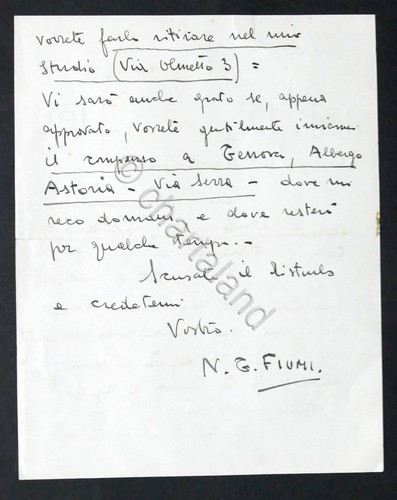 vorrete farlo ritirare nel mio
studio (Via Olmetto 3) =
Vi sarò anche grato se, appena
approvato, vorrete gentilmente inviarmi
il compenso a Genova, Albergo
Astoria - Via Serra - dove mi
reco domani, e dove resterò
per qualche tempo. -
Scusate il disturbo
e credetemi
Vostro.
N. G. FIUMI.
© chartaland